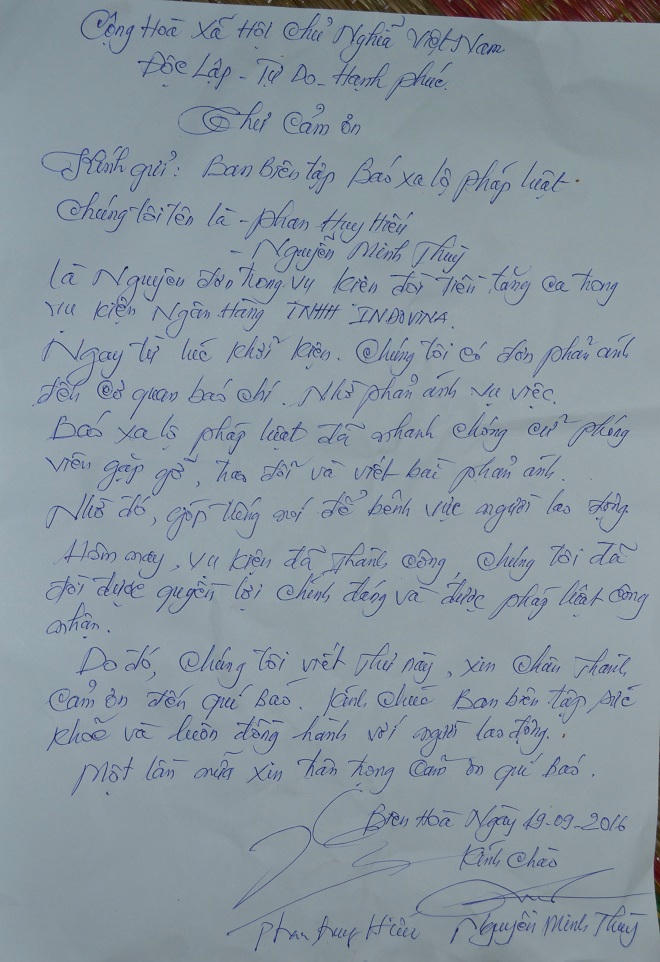 Cộng Hoà Xã Hội Chủ Nghĩa Việt Nam
Độc Lập - Tự Do - Hạnh phúc.
Thư Cảm ơn
Kính gửi: Ban Biên tập Báo xa lộ pháp luật.
Chúng tôi tên là - phan Huy Hiếu
- Nguyễn Minh Thuỳ
là Nguyên đơn trong vụ kiện đòi tiền tăng ca trong
vụ kiện Ngân Hàng TNHH INDOVINA.
Ngay từ lúc khởi kiện. Chúng tôi có đơn phản ánh
đến cơ quan báo chí. Nhờ phản ánh vụ việc.
Báo xa lộ pháp luật đã nhanh chóng cử phóng
viên gặp gỡ, trao đổi và viết bài phản ánh.
Nhờ đó, góp tiếng nói để bênh vực người lao động.
Hôm nay, vụ kiện đã thành công, chúng tôi đã
đòi được quyền lợi chính đáng và được pháp luật công
nhận.
Do đó, chúng tôi viết thư này, xin chân thành
cảm ơn đến quí báo. Kính chúc Ban biên tập sức
khoẻ và luôn đồng hành với người lao động.
Một lần nữa xin trân trọng cảm ơn quí báo.
Biên Hoà Ngày 19-09-2016
Kính chào
Phan Huy Hiếu Nguyễn Minh Thuỳ